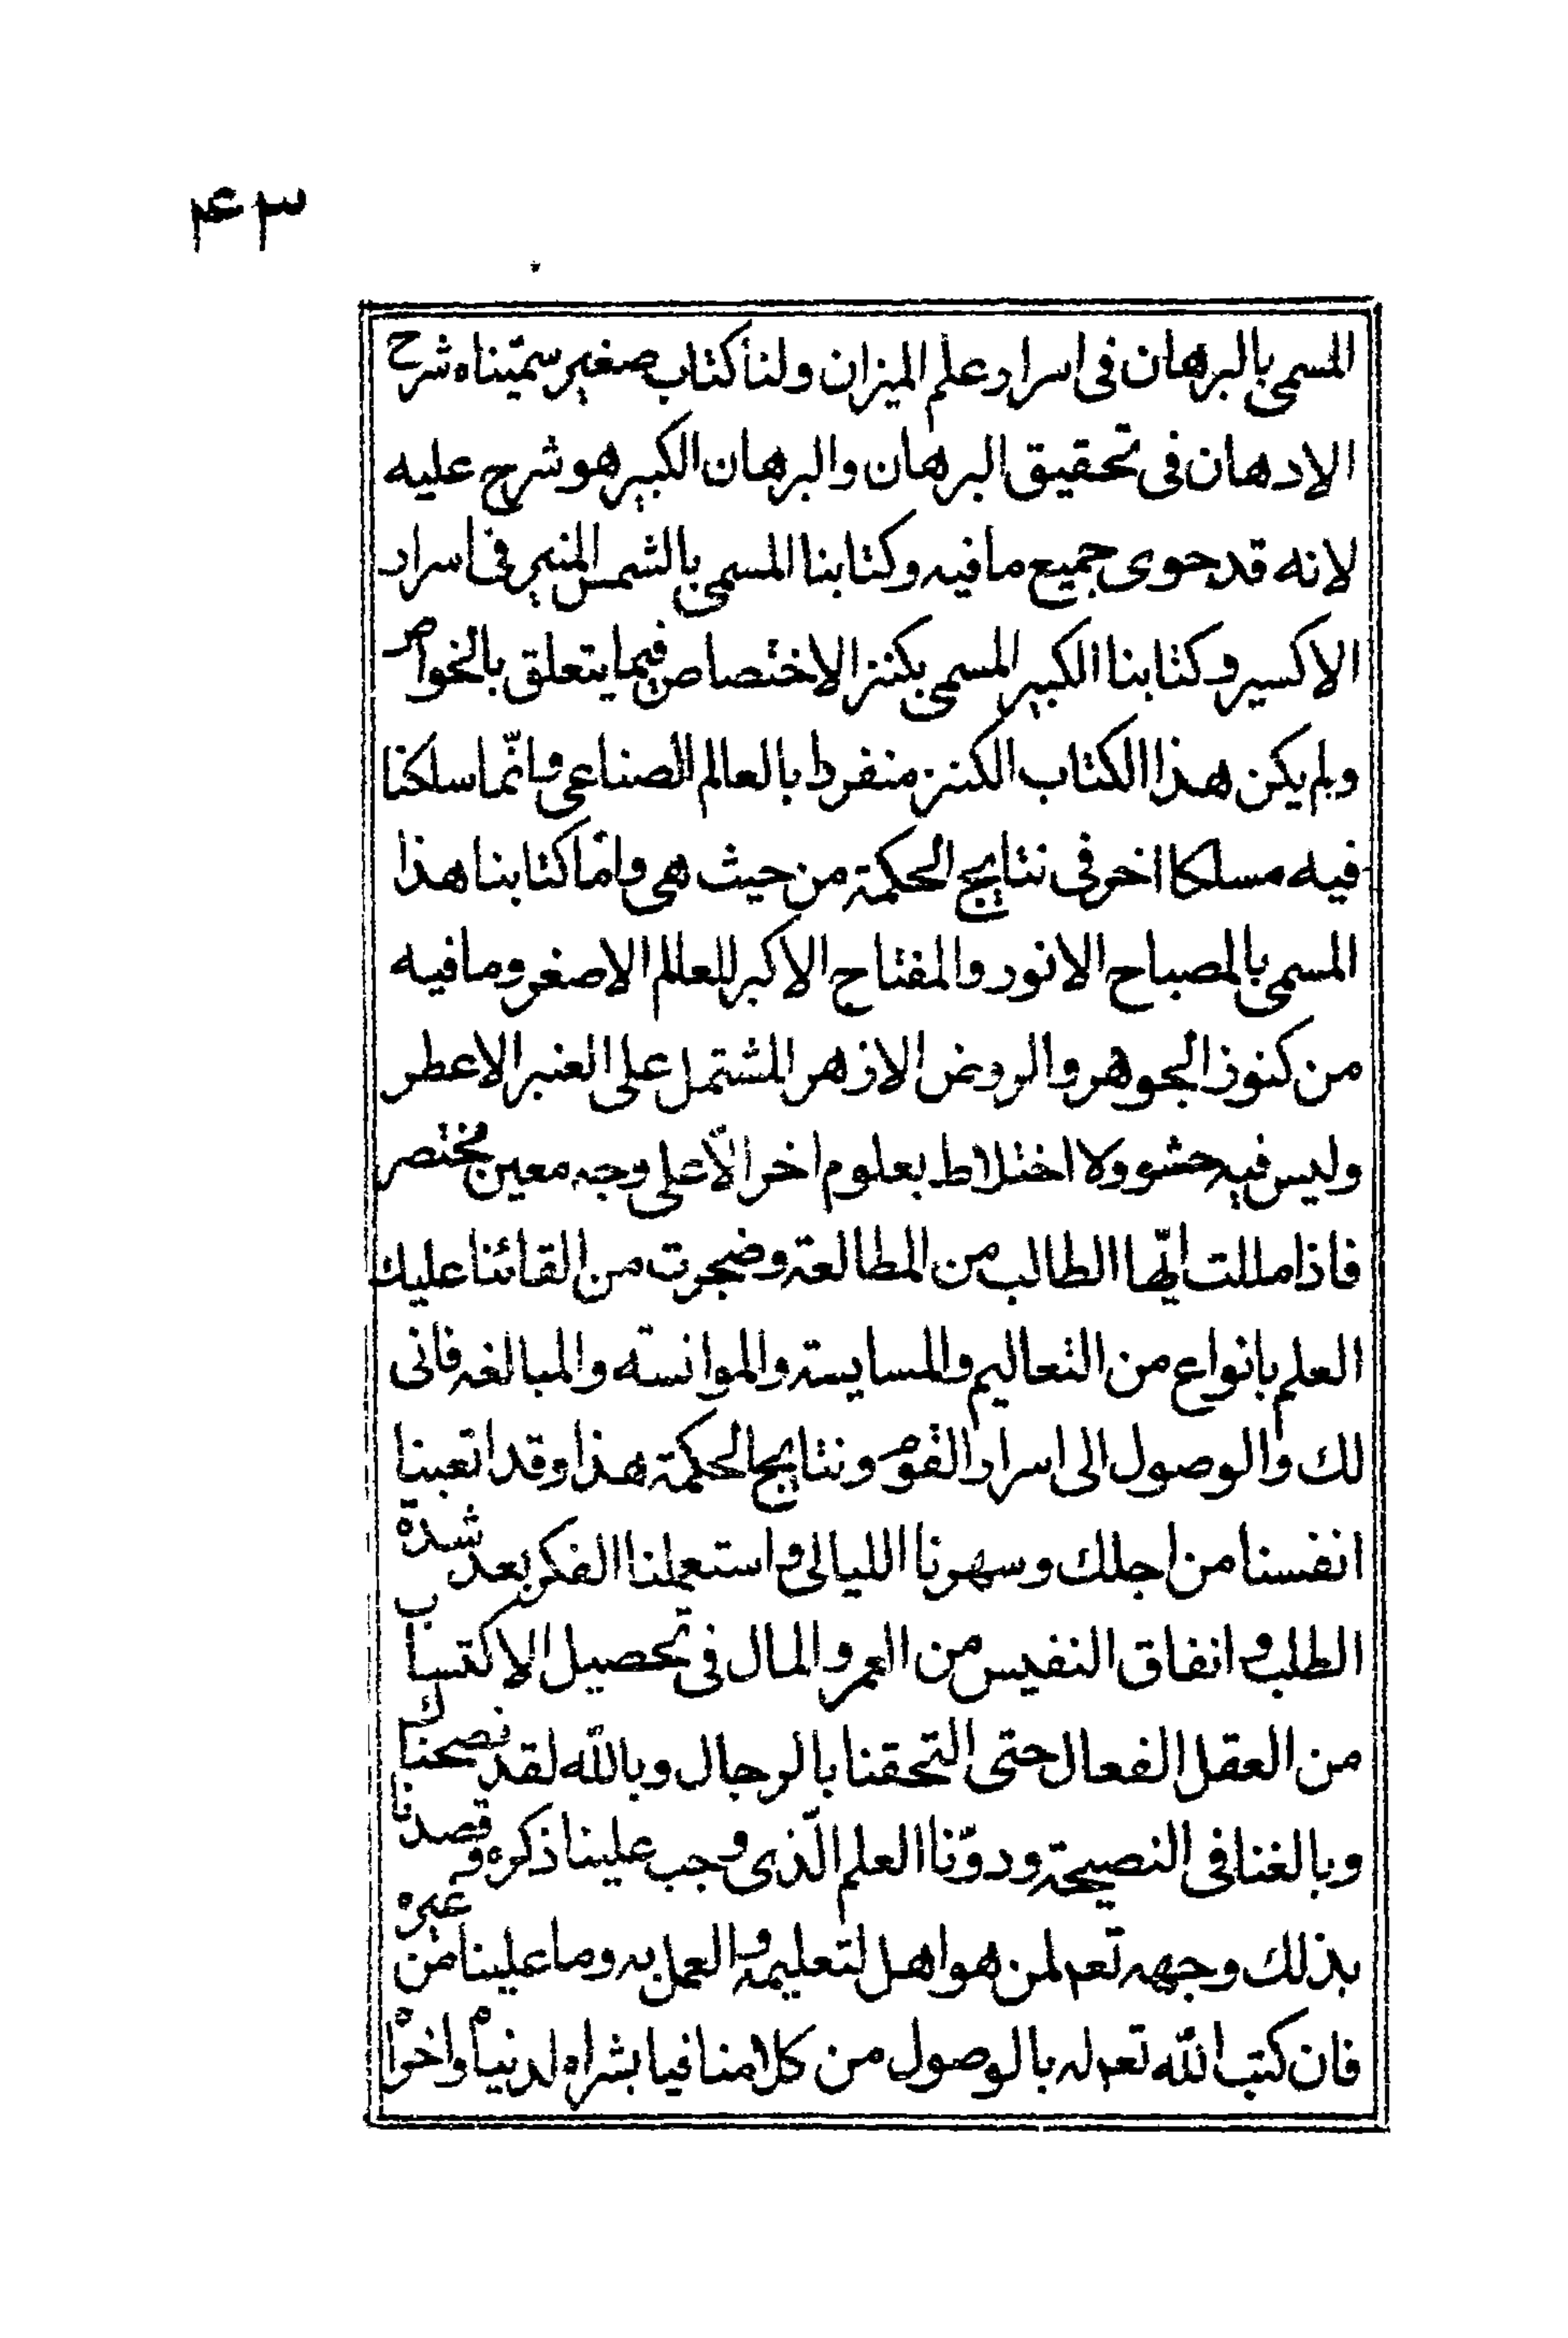 ۴۳
المسمى بالبرهان فى اسرار علم الميزان ولنا كتاب صغير سمّيناه شرح
الادهان فى تحقيق البرهان والبرهان الكبير هو شرح عليه
لانه قد حوى جميع ما فيه وكتابنا المسمى بالشمس المنير فى اسرار
الاكسير وكتابنا الكبير المسمى بكنز الاختصاص فيما يتعلق بالخواص
ولم يكن هذا الكتاب الكنز منفردا بالعالم الصناعى وانّما سلكنا
فيه مسلكا اخر فى نتايج الحكمة من حيث هى وامّا كتابنا هذا
المسمى بالمصباح الانور والمفتاح الاكبر للعالم الاصغر وما فيه
من كنوز الجوهر والروض الازهر المشتمل على العنبر الاعطر
وليس فيه حشو ولا اختلاط بعلوم اخر الّا على وجه معين مختصر
فاذا مللت ايّها الطالب من المطالعة وضجرت من القائنا عليك
العلم بانواع من التعاليم والمسايسة والموانسة والمبالغه فانى
لك والوصول الى اسرار القوم ونتايج الحكمة هذا وقد اتعبنا
انفسنا من اجلك وسهرنا الليالى واستعملنا الفكر بعد شدة
الطلب وانفاق النفيس من العمر والمال فى تحصيل الاكتساب
من العقل الفعال حتى التحقنا بالرجال وبالله لقد نصحناك
وبالغنا فى النصيحة ودوّنا العلم الّذى وجب علينا ذكره وقصدنا
بذلك وجهه تعه لمن هو اهل لتعليمه والعمل به وما علينا من غيره
فان كتب الله تعه له بالوصول من كلامنا فيا بشراه لدنياه واخراه